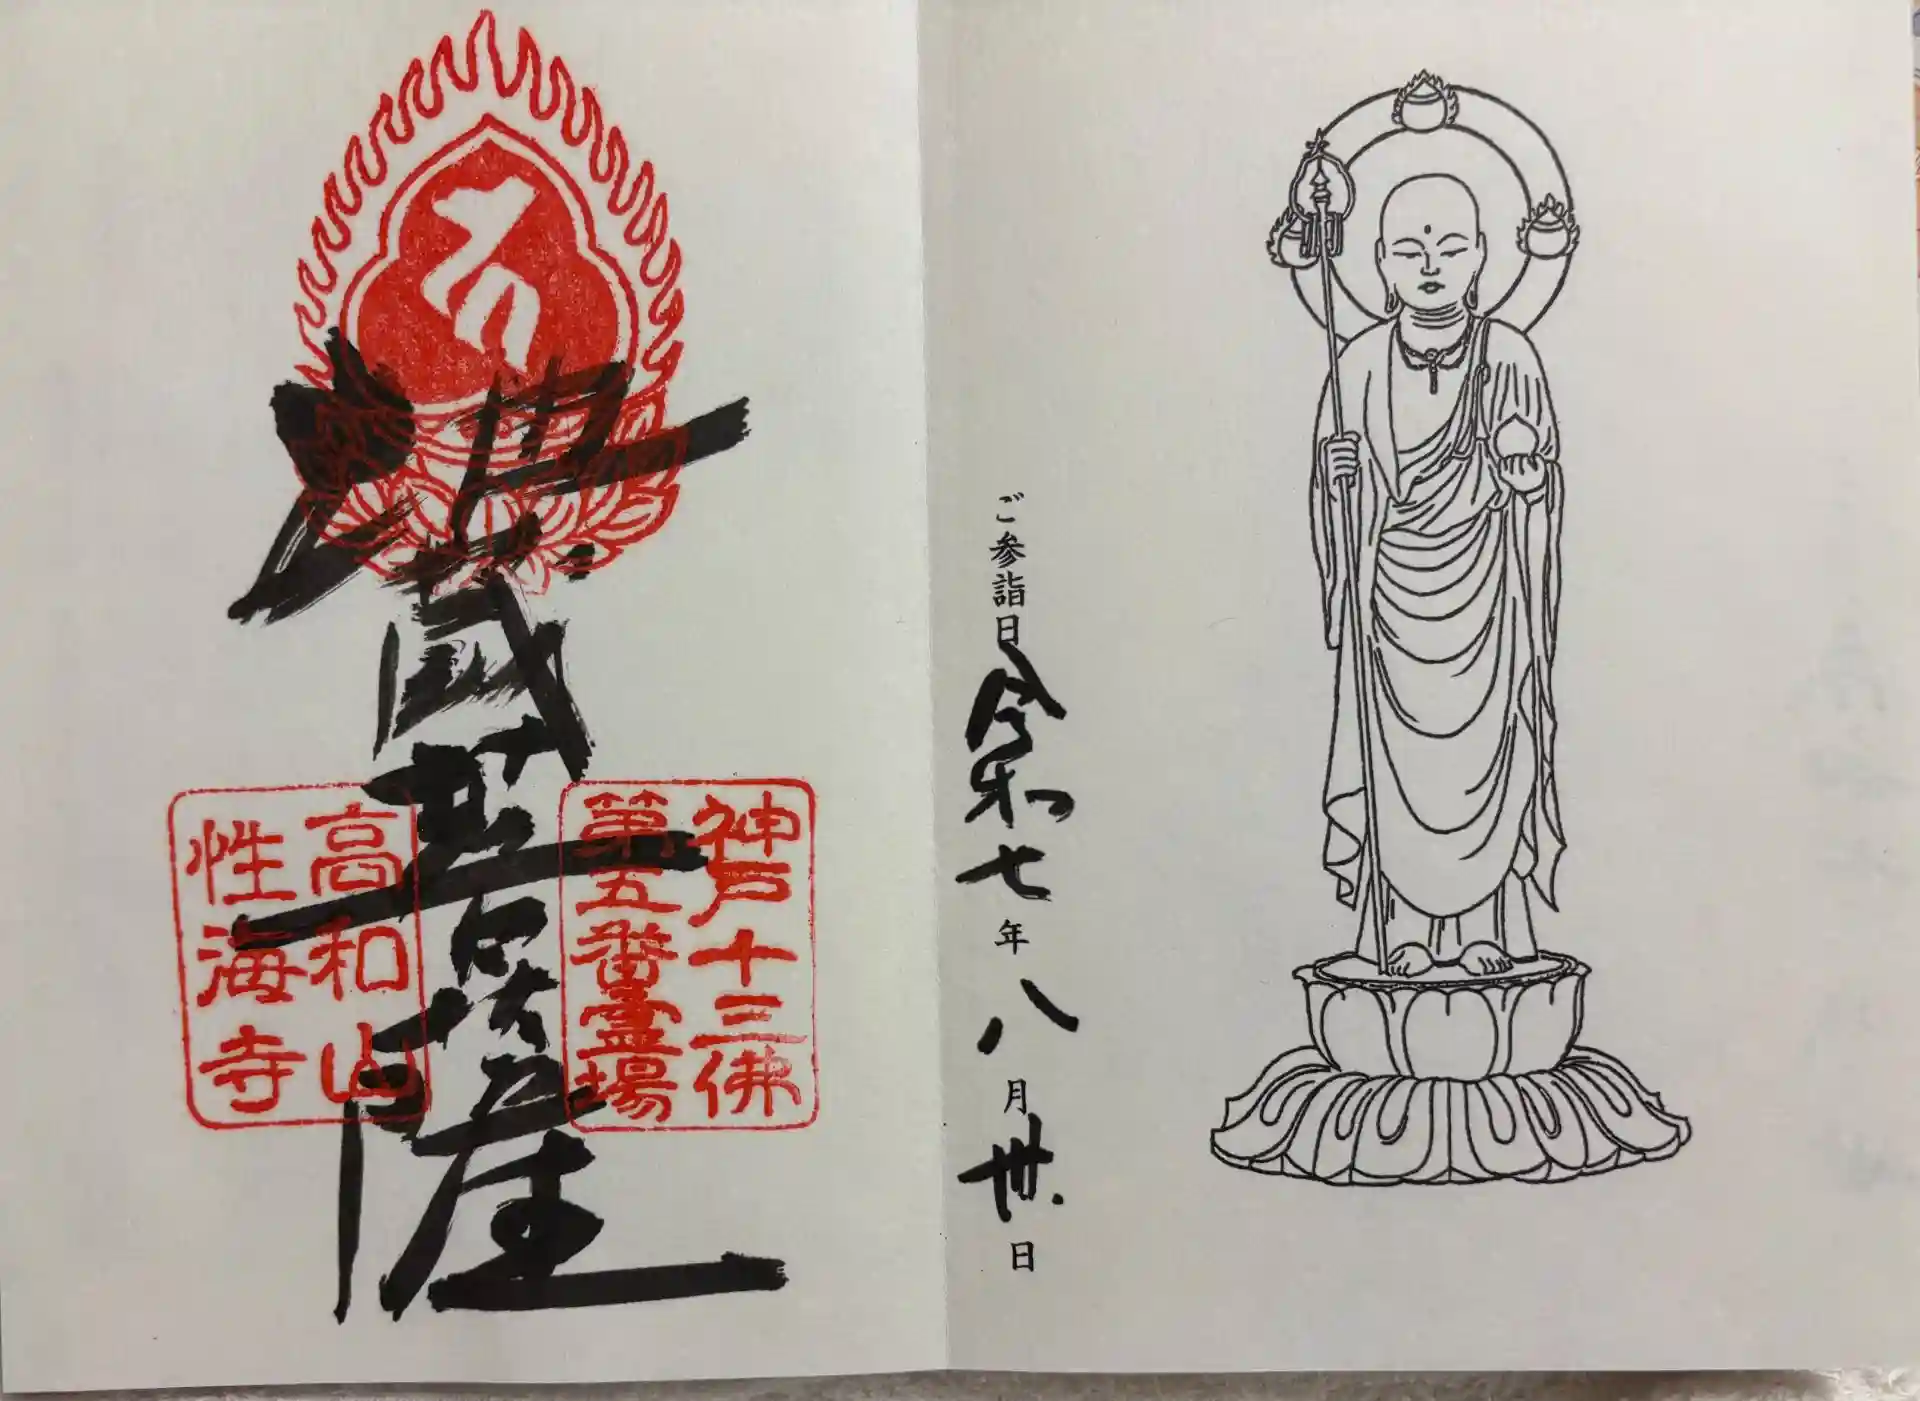 ご参詣日令和七年八月卅日
神戸十三佛
第五番霊場
地蔵菩薩
高和山
性海寺